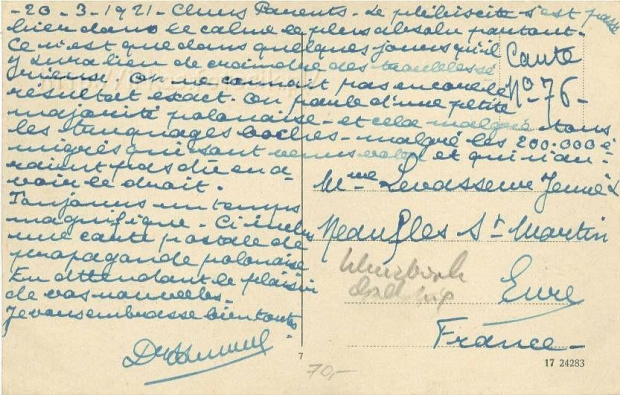 - 20 - 3 - 1921 - Chers Parents - Le plébiscite s'est passé
bien dans le calme le plus absolu partout -
Ce n'est que dans quelques jours qu'il
y aura lieu de craindre des troubles sé
rieux. On ne connait pas encore le
résultat exact. On parle d'une petite
majorité polonaise - et cela malgré tous
les truquages boches - malgré les 200.000 é
migrés qui sont venus voter et qui n'au-
raient pas dû en a
voir le droit.
Toujours un temps
magnifique - Ci inclus
une carte postale de
propagande polonaise
En attendant le plaisir
de vos nouvelles -
Je vous embrasse bien toutes
Carte
No 76 -
Mme Levasseur
Neaufles St Martin
Eure
France -
7
70,-
17 24283